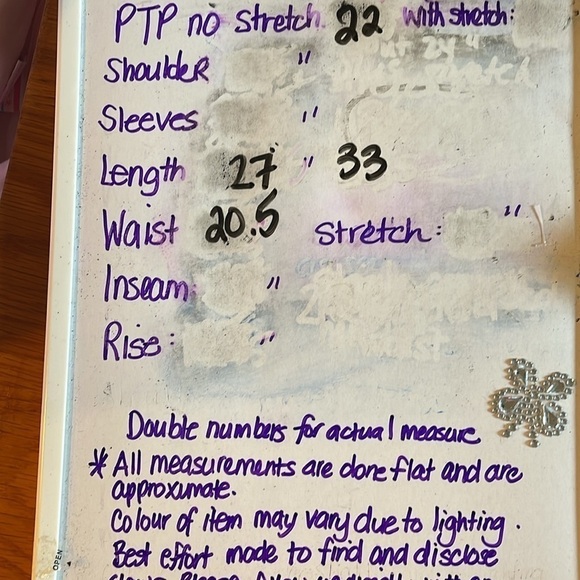 PTP no stretch 22 with stretch:
Shoulder "
Sleeves "
Length 27 " 33
Waist 20.5 stretch: "
Inseam: "
Rise: "
Double numbers for actual measure
* All measurements are done flat and are
approxumate.
Colour of item may vary due to lighting.
Best effort made to find and disclose
OPEN